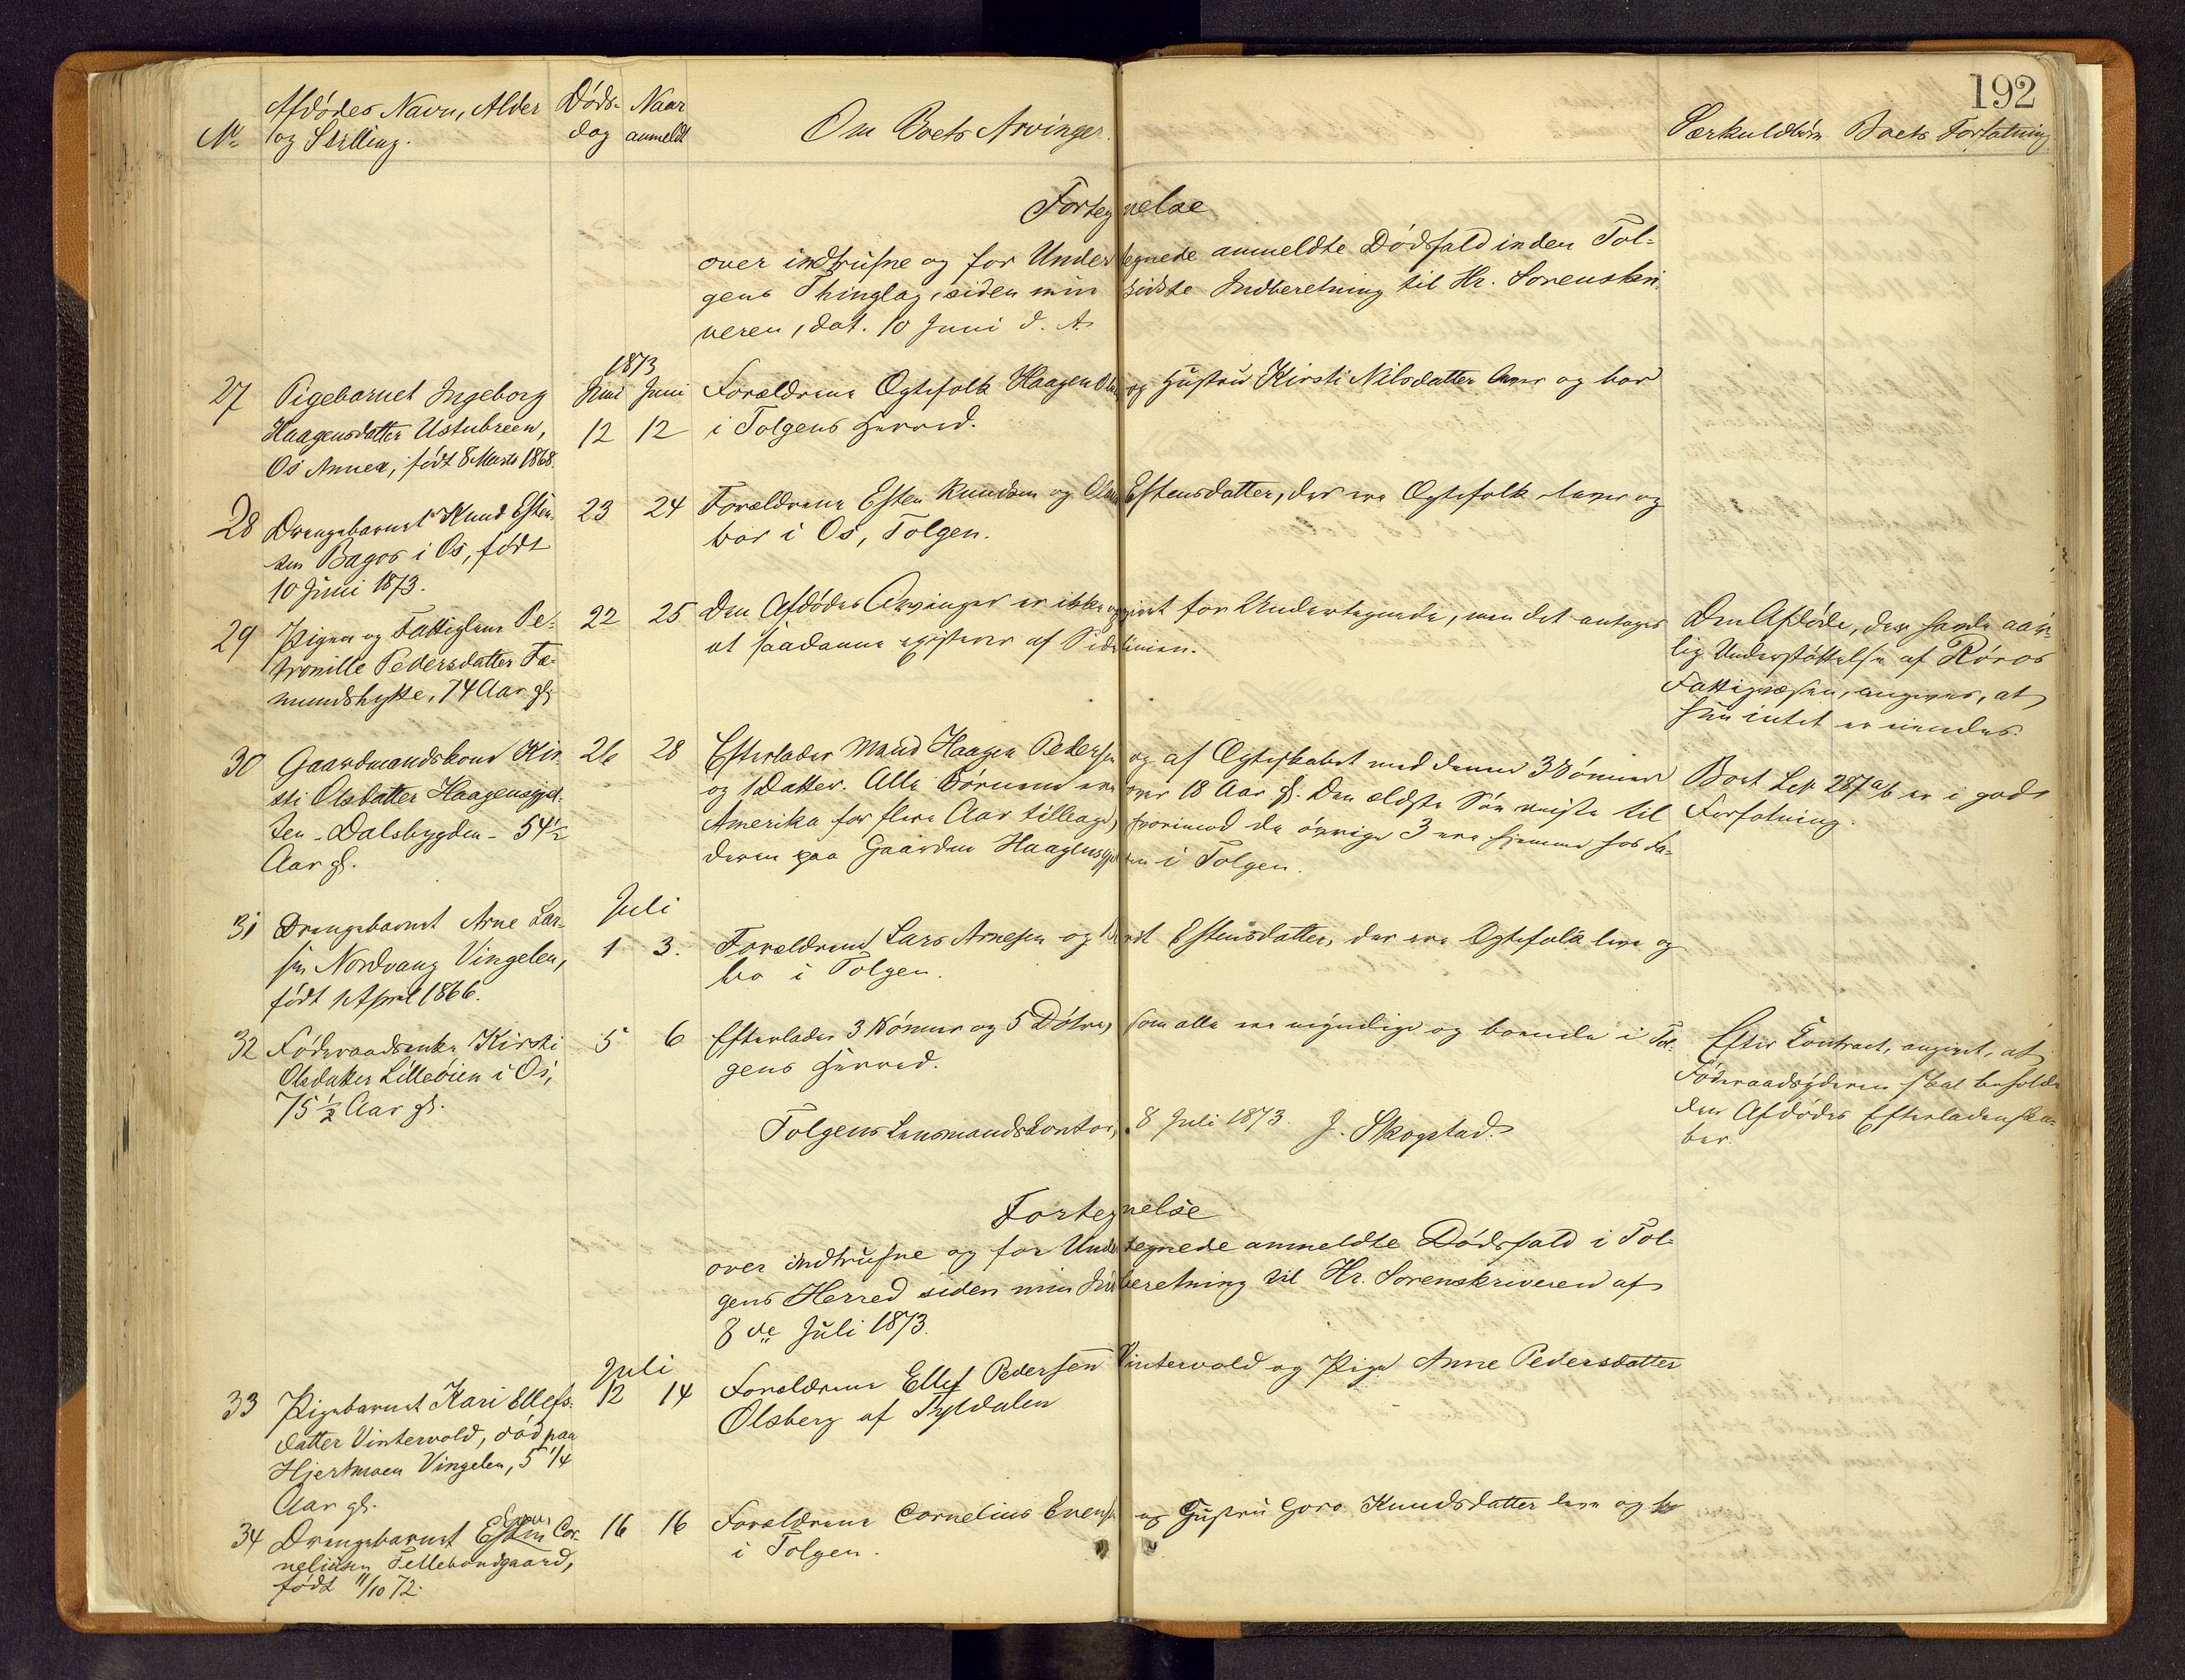 192
No Afdødes Navn, Alder og Stilling. Døds- dag Naar anmeldt Om Boets Arvinger. Særkuldbørn Boets Forfatning
Fortegnelse
over indtrufne og for Undertegnede anmeldte Dødsfald inden Tol-
gens Thinglag, siden min sidste Indberetning til Hr. Sorenskri-
veren, dat. 10 Juni d. A.
1873
27 Pigebarnet Ingeborg Juni Juni Forældrene Ægtefolk Haagen Olsen og Hustru Kirsti Nilsdatter lever og bor
Haagensdatter Ustubreen, 12 12 i Tolgens Herred.
Os Annex, født 8 Marts 1868.
28 Drengebarnet Knud Esten- 23 24 Forældrene Esten Knudsen og Estensdatter, der ere Ægtefolk lever og
sen Bagos i Os, født bor i Os, Tolgen.
10 Juni 1873.
29 Pigen og Fattiglem Pe- 22 25 Den Afdødes Arvinger er ikke opgivet for Undertegnede, men det antages
tronille Pedersdatter Fæ- at saadanne existerer af Sidelinien.
mundshytte, 74 Aar gl.
Den Afdøde, der havde aar-
lig Understøttelse af Røros
Fattigvæsen, angives, at
hun intet er eiendes.
30 Gaardmandskone Kir 26 28 Efterlader Mand Haagen Pedersen og af Ægteskabet med denne 3 Sønner
sti Olsdatter Haagensgjel- og 1 Datter. Alle Børnene ere over 18 Aar gl. Den ældste Søn reiste til
ten - Dalsbygden - 54½ Amerika for flere Aar tilbage, hvorimod de øvrige 3 ere hjemme hos Fa-
Aar gl. deren paa Gaarden Haagensgjelten i Tolgen.
Boet Løb 287 a/b er i god
Forfatning.
Juli
31 Drengebarnet Arne Lar- 1 3. Forældrene Lars Arnesen og Berit Estensdatter, der ere Ægtefolk leve og
sen Nordvang Vingelen, bo i Tolgen.
født 1 April 1866.
32 Føderaadsenke Kirsti 5 6 Efterlader 3 Sønner og 5 Døtre, som alle ere myndige og boende i Tol-
Olsdatter Lillebøen i Os, gens Herred.
75½ Aar gl.
Efter Contract, angivet, at
Føderaadsyderen skal beholde
den Afdødes Efterladenska-
ber.
Tolgens Lensmandskontor, 8 Juli 1873. J. Skogstad.
Fortegnelse
over indtrufne og for Undertegnede anmeldte Dødsfald i Tol-
gens Herred siden min Indberetning til Hr. Sorenskriveren af
8de Juli 1873.
Juli
33 Pigebarnet Kari Ellefs- 12 14 Forældrene Ellef Pedersen Vintervold og Pige Anne Pedersdatter
datter Vintervold, død paa Olsberg af Tyldalen
Hjertmoen Vingelen, 5 1/4
Aar gl.
34 Drengebarnet Even Cor- 16 16 Forældrene Cornelius Evensen og Hustru Goro Knudsdatter leve og bo
neliusen Tellebondgaard, i Tolgen.
født 11/10 72.